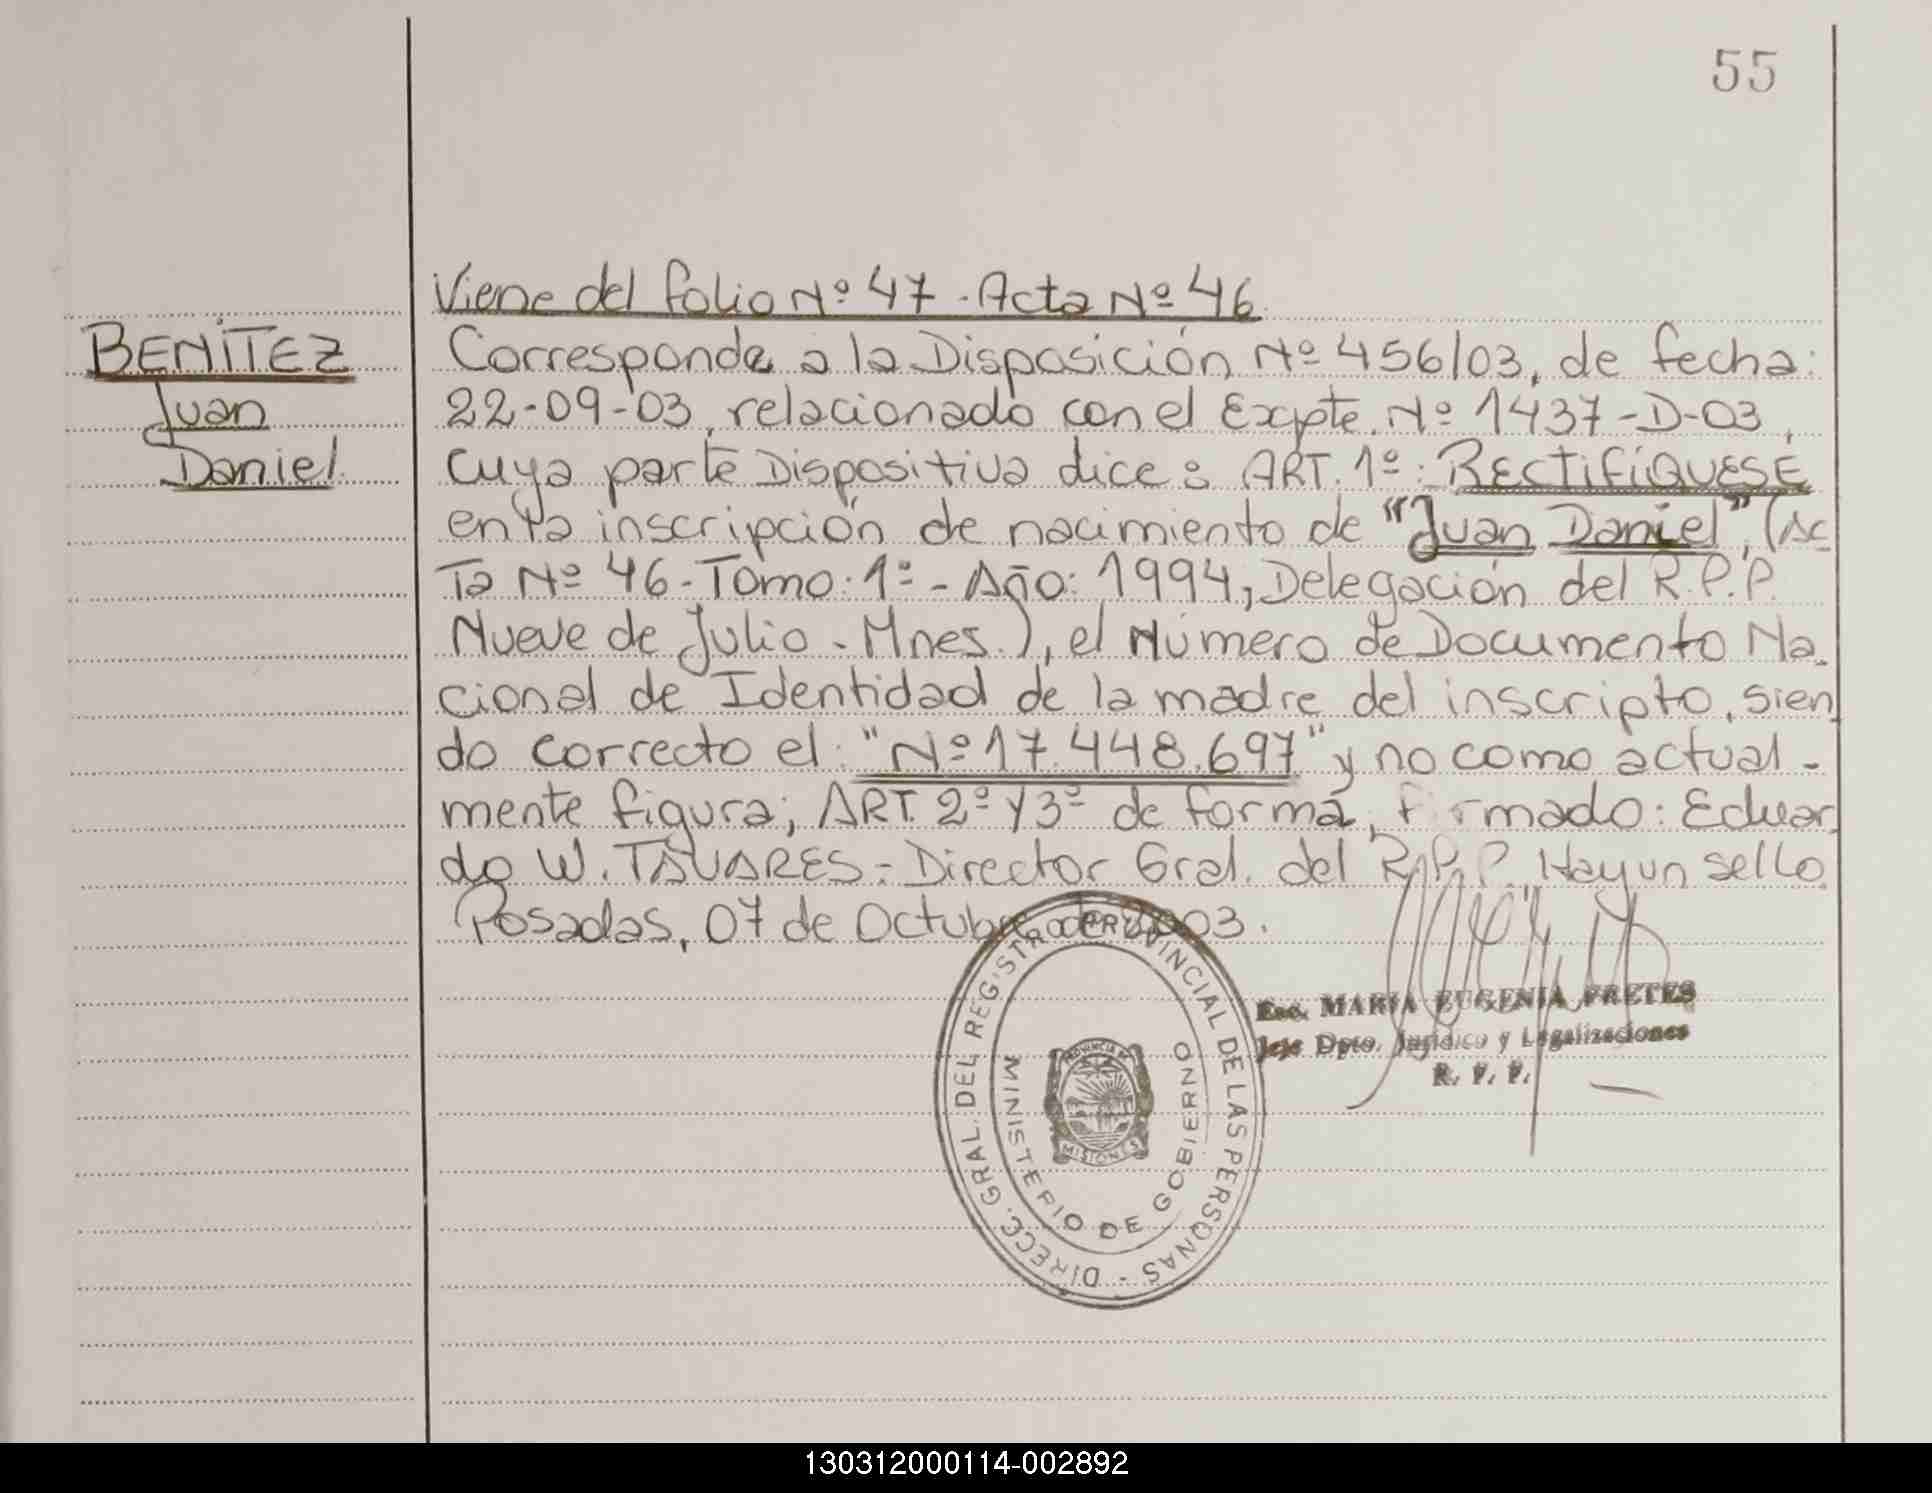 55
Viene del folio Nº 47 - Acta Nº 46
BENÍTEZ
Juan
Daniel
Corresponde a la Disposición Nº 456/03, de fecha:
22-09-03, relacionado con el Expte. Nº 1437-D-03,
cuya parte Dispositiva dice: ART. 1º: RECTIFÍQUESE
en la inscripción de nacimiento de "Juan Daniel", (Ac
ta Nº 46 - Tomo: 1º - Año: 1994, Delegación del R.P.P.
Nueve de Julio - Mnes.), el Número de Documento Na-
cional de Identidad de la madre del inscripto, sien
do correcto el: "Nº 17.448.697" y no como actual-
mente figura; ART. 2º y 3º de forma, Firmado: Eduar
do W. TAVARES - Director Gral. del R.P.P. Hay un sello
Posadas, 07 de Octubre de 2003.
DIRECC. GRAL. DEL REGISTRO PROVINCIAL DE LAS PERSONAS -
MINISTERIO DE GOBIERNO
PROVINCIA DE
MISIONES
Esc. MARIA EUGENIA FRETES
Jefe Dpto. Jurídico y Legalizaciones
R. P. P.
130312000114-002892